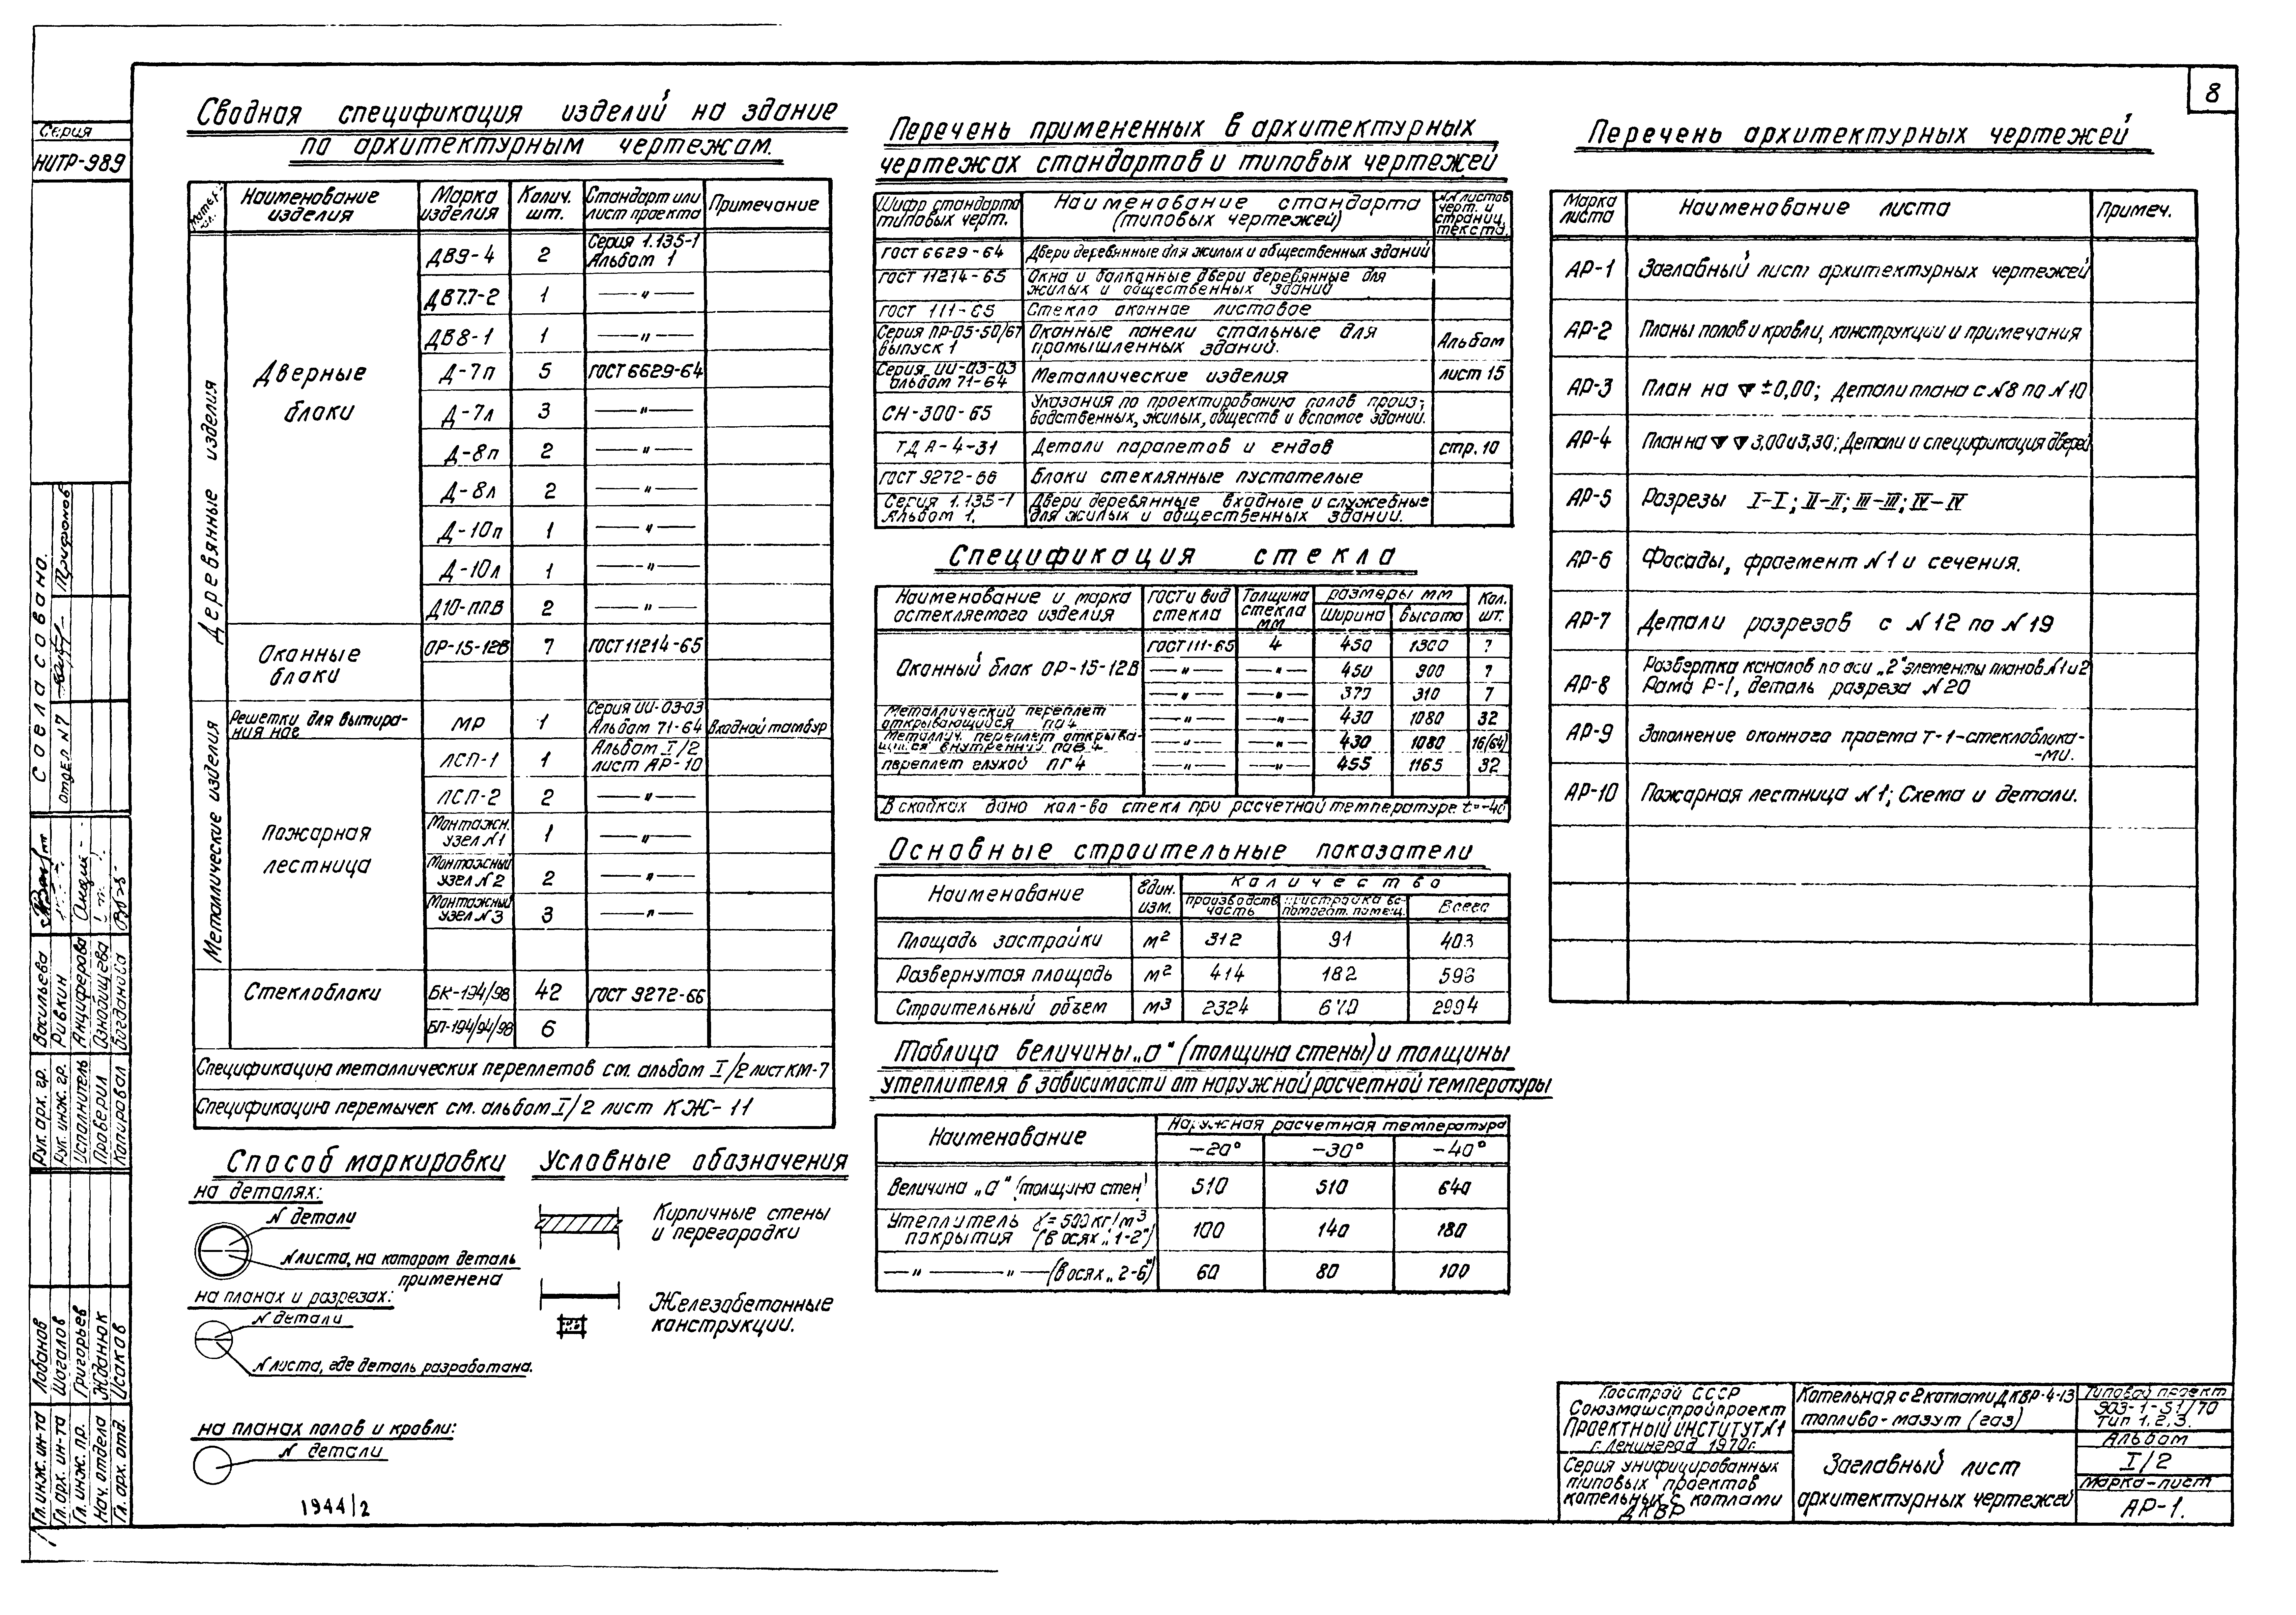 8
Серия
НИТР-989
Сводная спецификация изделий на здание
по архитектурным чертежам.
Матер. Наименование изделия Марка изделия Колич. шт. Стандарт или лист проекта Примечание
Деревянные изделия
Дверные блоки
ДВ9-4 2 Серия 1.135-1 Альбом 1
ДВ7.7-2 1 —〃—
ДВ8-1 1 —〃—
Д-7п 5 ГОСТ 6629-64
Д-7л 3 —〃—
Д-8п 2 —〃—
Д-8л 2 —〃—
Д-10п 1 —〃—
Д-10л 1 —〃—
Д10-ППВ 2 —〃—
Оконные блоки ОР-15-12В 7 ГОСТ 11214-65
Металлические изделия
Решетки для вытирания ног МР 1 Серия ИИ-03-03 Альбом 71-64 Входной тамбур
Пожарная лестница
ЛСП-1 1 Альбом I/2 лист АР-10
ЛСП-2 2 —〃—
Монтажн. узел №1 1 —〃—
Монтажный узел №2 2 —〃—
Монтажный узел №3 3 —〃—
Стеклоблоки БК-194/98 42 ГОСТ 9272-66
БП-194/94/98 6
Спецификацию металлических переплетов см. альбом I/2 лист КМ-7
Спецификацию перемычек см. альбом I/2 лист КЖ-11
Способ маркировки
на деталях:
N детали
N листа, на котором деталь
применена
на планах и разрезах:
N детали
N листа, где деталь разработана.
на планах полов и кровли:
N детали
1944/2
Условные обозначения
Кирпичные стены
и перегородки
Железобетонные
конструкции.
Перечень примененных в архитектурных
чертежах стандартов и типовых чертежей
Шифр стандарта типовых черт. Наименование стандарта (типовых чертежей) NN листов черт. и страниц текста.
ГОСТ 6629-64 Двери деревянные для жилых и общественных зданий
ГОСТ 11214-65 Окна и балконные двери деревянные для
жилых и общественных зданий
ГОСТ 111-65 Стекло оконное листовое
Серия ПР-05-50/67 выпуск 1 Оконные панели стальные для
промышленных зданий. Альбом
Серия ИИ-03-03 альбом 71-64 Металлические изделия лист 15
СН-300-65 Указания по проектированию полов произ-
водственных, жилых, обществ и вспомог зданий.
ТДА-4-31 Детали парапетов и ендов стр. 10
ГОСТ 9272-66 Блоки стеклянные пустотелые
Серия 1.135-1 Альбом 1. Двери деревянные входные и служебные
для жилых и общественных зданий.
Спецификация стекла
Наименование и марка остекляемого изделия ГОСТ и вид стекла Толщина стекла мм размеры мм Ширина высота Кол. шт.
Оконный блок ОР-15-12В ГОСТ 111-65 4 450 1300 7
—〃— —〃— 450 900 7
—〃— —〃— 370 310 7
Металлический переплет открывающийся ПО4 —〃— —〃— 430 1080 32
Металлич. переплет открыва-
ющийся внутренний ПОВ 4 —〃— —〃— 430 1080 16(64)
переплет глухой ПГ4 —〃— —〃— 455 1165 32
В скобках дано кол-во стекл при расчетной температуре t=-40°
Основные строительные показатели
Наименование Един. изм. Количество производств часть пристройка вспомогат. помещ. Всего
Площадь застройки м² 312 91 403
Развернутая площадь м² 414 182 596
Строительный объем м³ 2324 670 2994
Таблица величины „а“ (толщина стены) и толщины
утеплителя в зависимости от наружной расчетной температуры
Наименование Наружная расчетная температура
-20° -30° -40°
Величина „а“ (толщина стен) 510 510 640
Утеплитель покрытия γ=500кг/м³ (в осях „1-2“) 100 140 180
—〃— —〃— (в осях „2-6“) 60 80 100
Перечень архитектурных чертежей
Марка листа Наименование листа Примеч.
АР-1 Заглавный лист архитектурных чертежей
АР-2 Планы полов и кровли, конструкции и примечания
АР-3 План на ▽ ±0,00; Детали плана с N8 по N10
АР-4 План на ▽ ▽ 3,00 и 3,30; Детали и спецификация дверей
АР-5 Разрезы I-I; II-II; III-III; IV-IV
АР-6 Фасады, фрагмент N1 и сечения.
АР-7 Детали разрезов с N12 по N19
АР-8 Развертка каналов по оси „2“ элементы планов N1 и 2
Рама Р-1, деталь разреза N20
АР-9 Заполнение оконного проема Т-1-стеклоблока-
-ми.
АР-10 Пожарная лестница N1; Схема и детали.
Госстрой СССР
Союзмашстройпроект
Проектный институт №1
г. Ленинград 1970г.
Серия унифицированных
типовых проектов
котельных с котлами
ДКВР
Котельная с 2 котлами ДКВР-4-13
топливо-мазут (газ)
Заглавный лист
архитектурных чертежей
Типовой проект
903-1-51/70
Тип 1.2.3.
Альбом
I/2
Марка-лист
АР-1.
Согласовано.
Отдел N7 Трифонов
Рук. арх. гр. Васильева
Рук. инж. гр. Ривкин
Исполнитель Анциферова
Проверил Ознобищева
Копировал Богданова
Гл. инж. ин-та Лобанов
Гл. арх. ин-та Шагалов
Гл. инж. пр. Григорьев
Нач. отдела Жданюк
Гл. арх. отд. Исаков